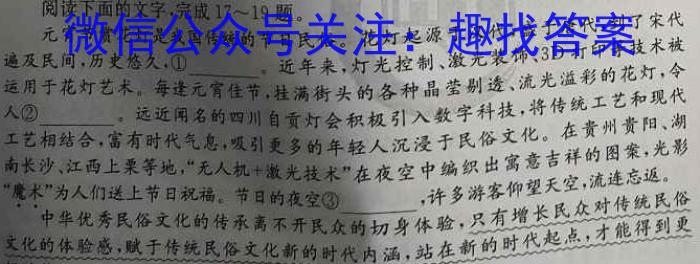 阅读下面的文字,完成17~19题。
微信公众号关注：趣找答案
元宵赏灯是我国传统的节日民俗。花灯起源于 代, 代 到了宋代
遍及民间,历史悠久,①________。近年来,灯光控制、激光装饰、3D打印等技术被
运用于花灯艺术。每逢元宵佳节,挂满街头的各种晶莹剔透、流光溢彩的花灯,令
人②________。远近闻名的四川自贡灯会积极引入数字科技,将传统工艺和现代
工艺相结合,富有时代气息,吸引更多的年轻人沉浸于民俗文化。在贵州贵阳、湖
南长沙、江西上栗等地,“无人机+激光技术”在夜空中编织出寓意吉祥的图案,光影
“魔术”为人们送上节日祝福。节日的夜空③________,许多游客仰望天空,流连忘返。
中华优秀民俗文化的传承离不开民众的切身体验,只有增长民众对传统民俗
文化的体验感,赋于传统民俗文化新的时代内涵,站在新的时代起点,才能得到更